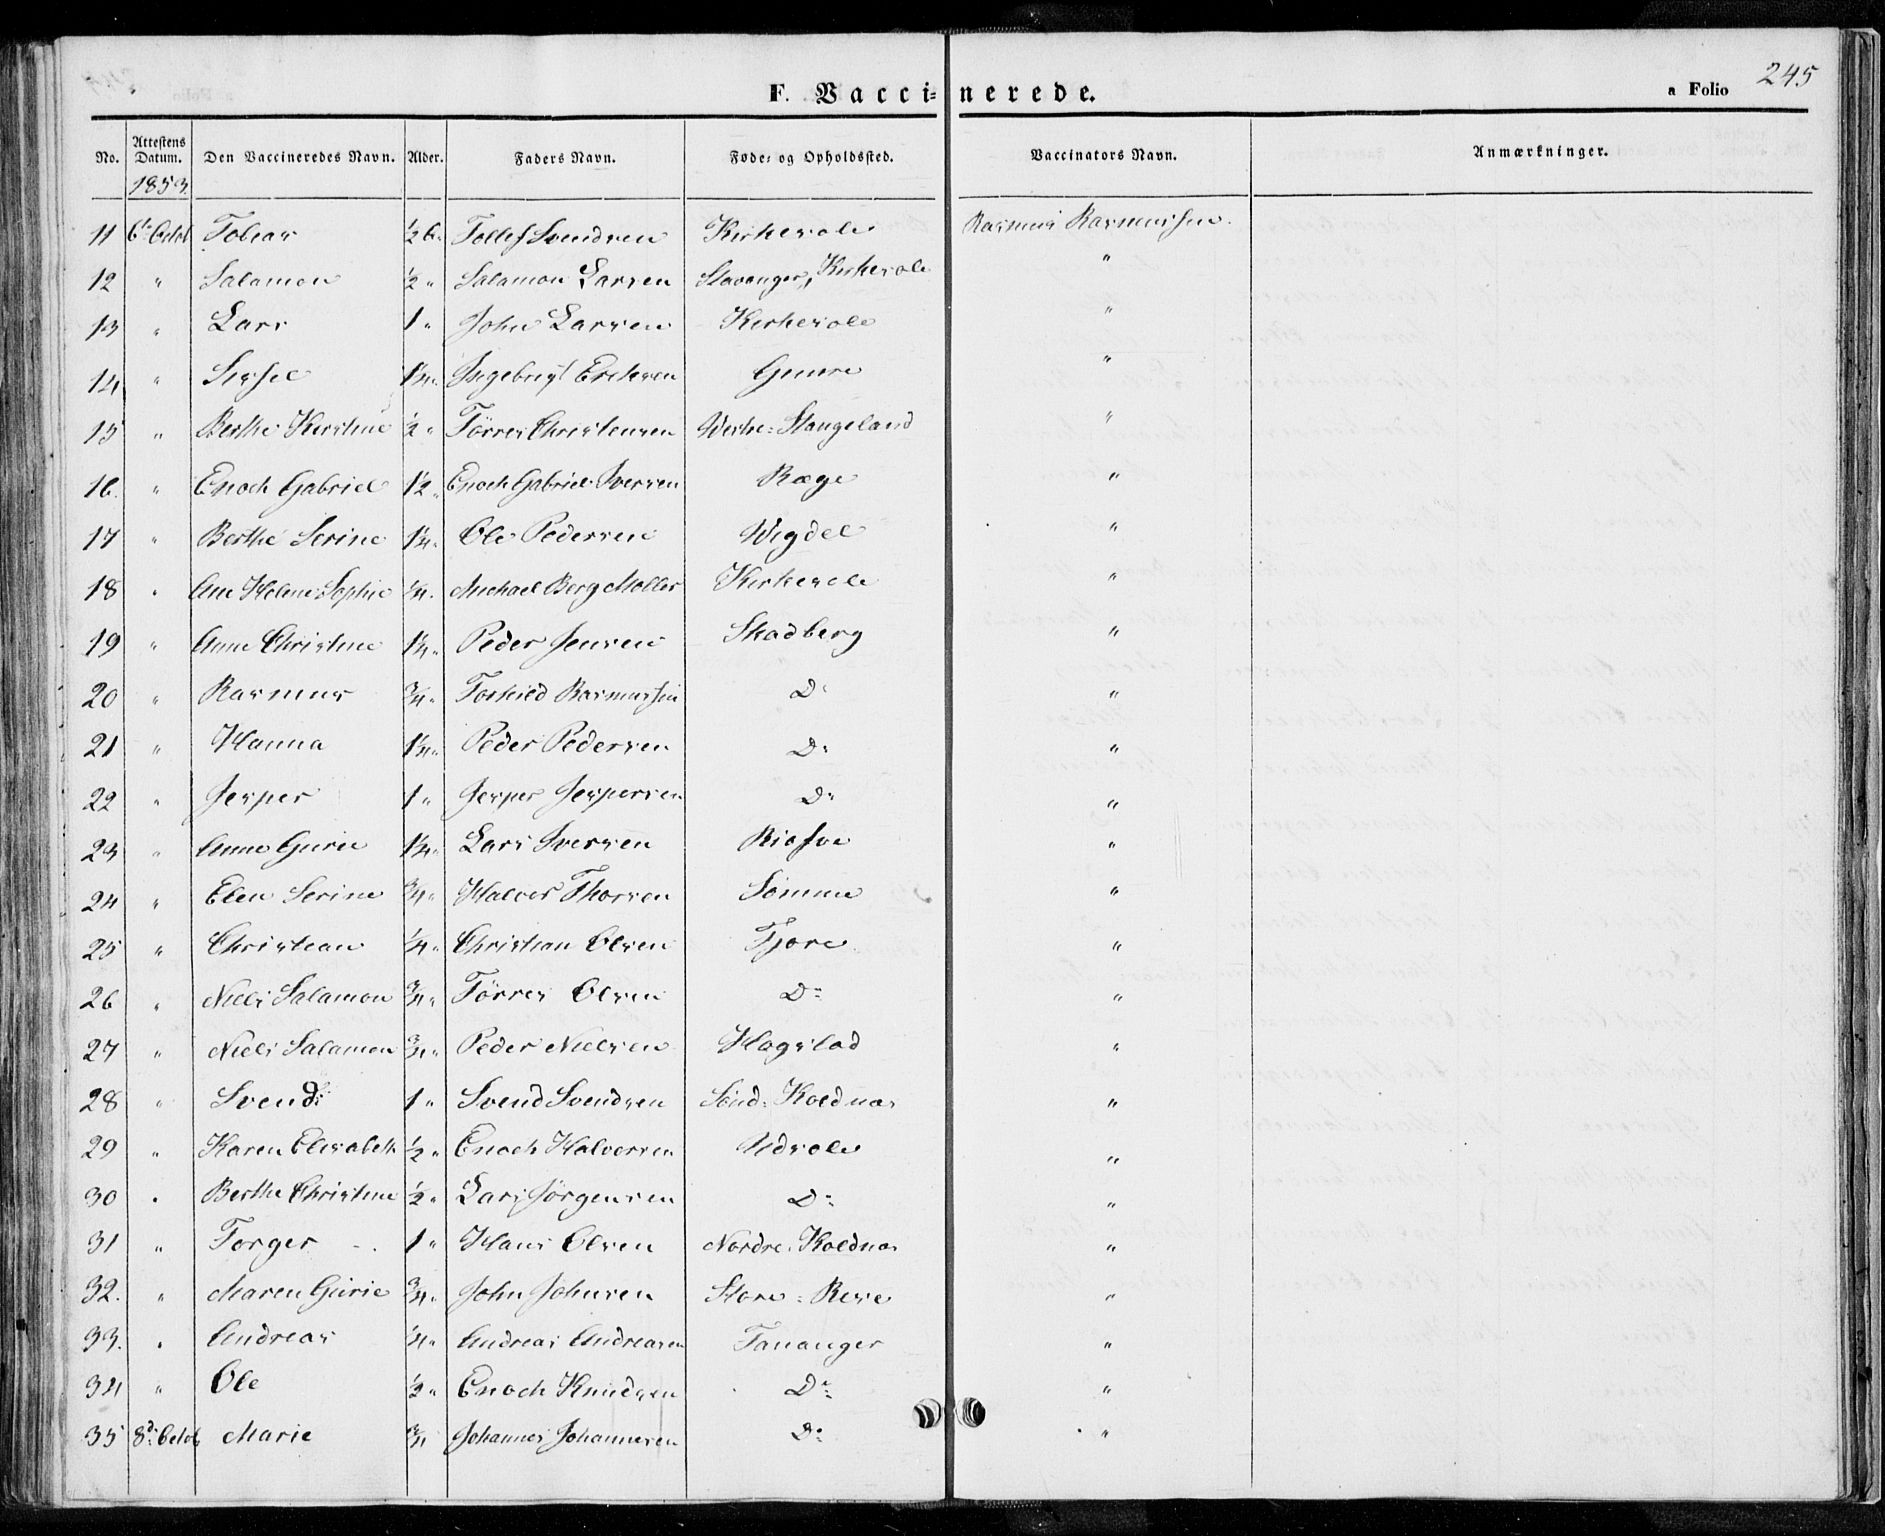 245
F. Vacci=nerede. a Folio
No. Attestens Datum. Den Vaccineredes Navn. Alder. Faders Navn. Føde= og Opholdssted. Vaccinators Navn. Anmærkninger.
1853
11 6t Octob Tobias ½ Tollef Svendsen Kirkesole Rasmus Rasmussen
12 " Salamon ½ " Salamon Larsen Stavanger, Kirkesole "
13 " Lars 1 " John Larsen Kirkesole "
14 " Sirsel 1¼ " Ingebrigt Eriksen Gimre "
15 " Berthe Kirstine ½ " Törres Christensen Westre= Stangeland "
16. " Enoch Gabriel 1½ " Enoch Gabriel Iversen Ræge "
17 " Berthe Serine 1¼ " Ole Pedersen Wigdel "
18 " Ane Helene Sophie ¼ " Michael Berg Møller Kirkesole "
19 " Anne Christine 1¼ " Peder Jensen Skadberg "
20 " Rasmus ¾ " Torkild Rasmussen Do "
21 " Hanna 1¼ " Peder Pedersen Do "
22 " Jesper 1 " Jesper Jespersen Do "
23 " Anne Gurie 1¼ " Lars Iversen "
24 " Elen Serine ¾ " Halvor Thorsen Sømme "
25 " Christian ¼ " Christian Olsen Tjore "
26 " Niels Salamon ¾ " Törres Olsen Do "
27 " Niels Salamon ¾ " Peder Nielsen Hogstad "
28 " Svend 1 " Svend Svendsen Sönd: Koldnæs "
29 " Karen Elisabeth ½ " Enoch Halvorsen Udsole "
30 " Berthe Christine ½ " Lars Jörgensen Do "
31 " Torger 1 " Hans Olsen Nordre: Koldnæs "
32. " Maren Gurie ¾ " John Johnsen Store= Rese "
33. " Andreas ¼ " Andreas Andreasen Tananger "
34 " Ole ½ " Enoch Knudsen Do "
35 8d Octob Marie ¾ Johannes Johannesen Do "